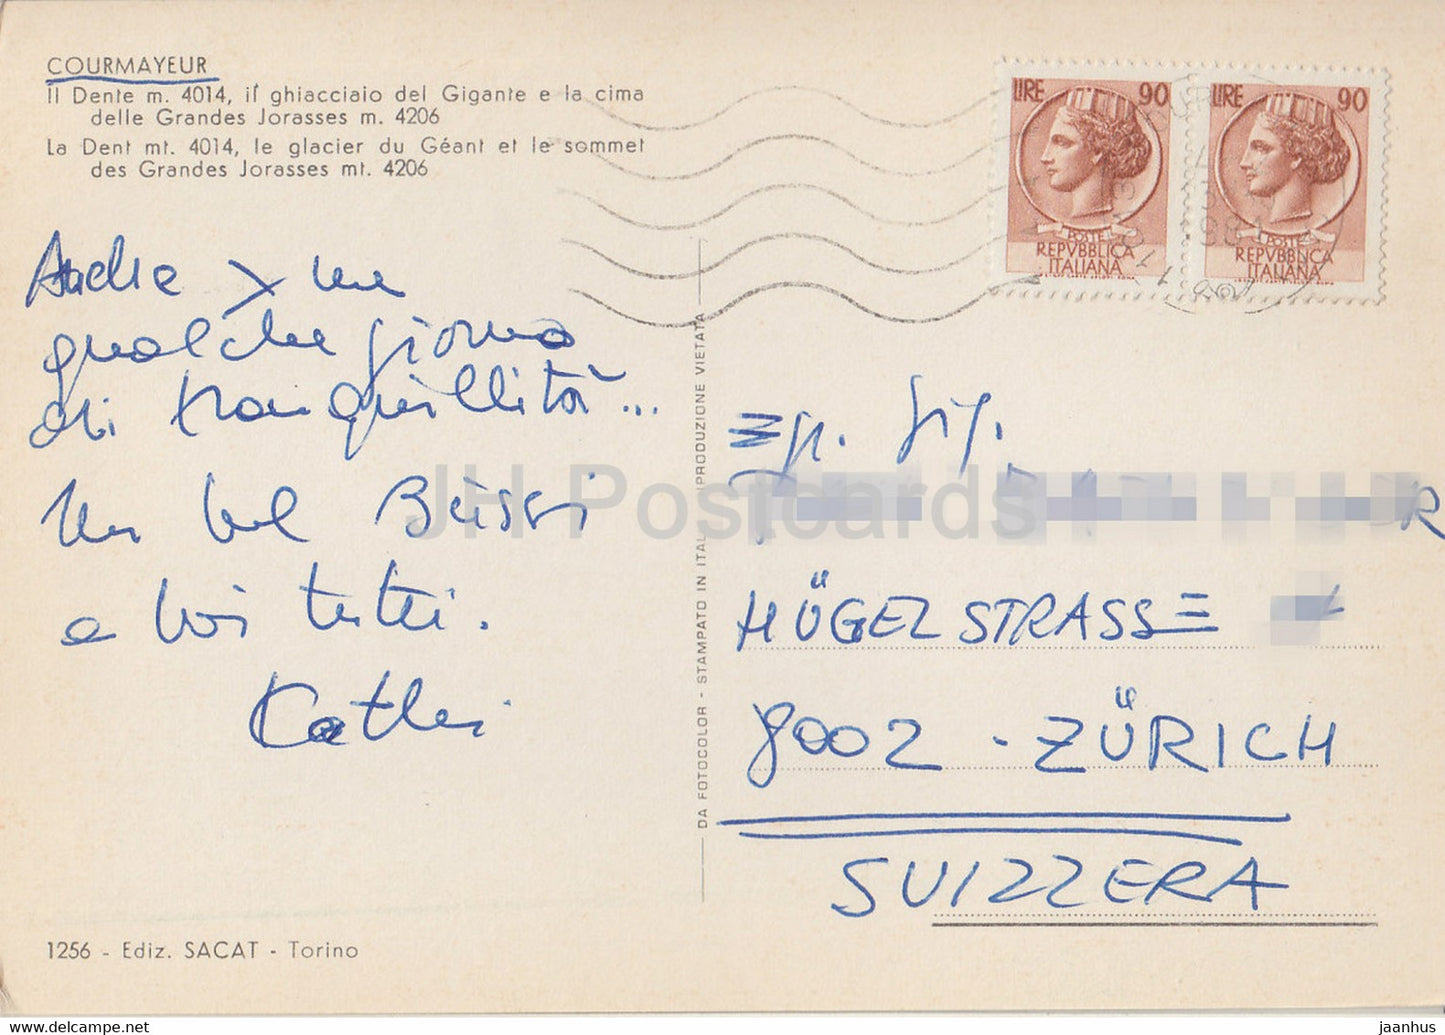 COURMAYEUR
Il Dente m. 4014, il ghiacciaio del Gigante e la cima
delle Grandes Jorasses m. 4206
La Dent mt. 4014, le glacier du Géant et le sommet
des Grandes Jorasses mt. 4206
LIRE 90
POSTE
REPVBBLICA
ITALIANA
LIRE 90
POSTE
REPVBBLICA
ITALIANA
Anche x me
qualche giorno
di tranquillità...
Un bel
a voi tutti.
DA FOTOCOLOR - STAMPATO IN ITAL RIPRODUZIONE VIETATA
Egr. Sig.
R
HÜGELSTRASSE
8002 - ZÜRICH
SVIZZERA
1256 - Ediz. SACAT - Torino
JH Postcards
https://www.delcampe.net
jaanhus